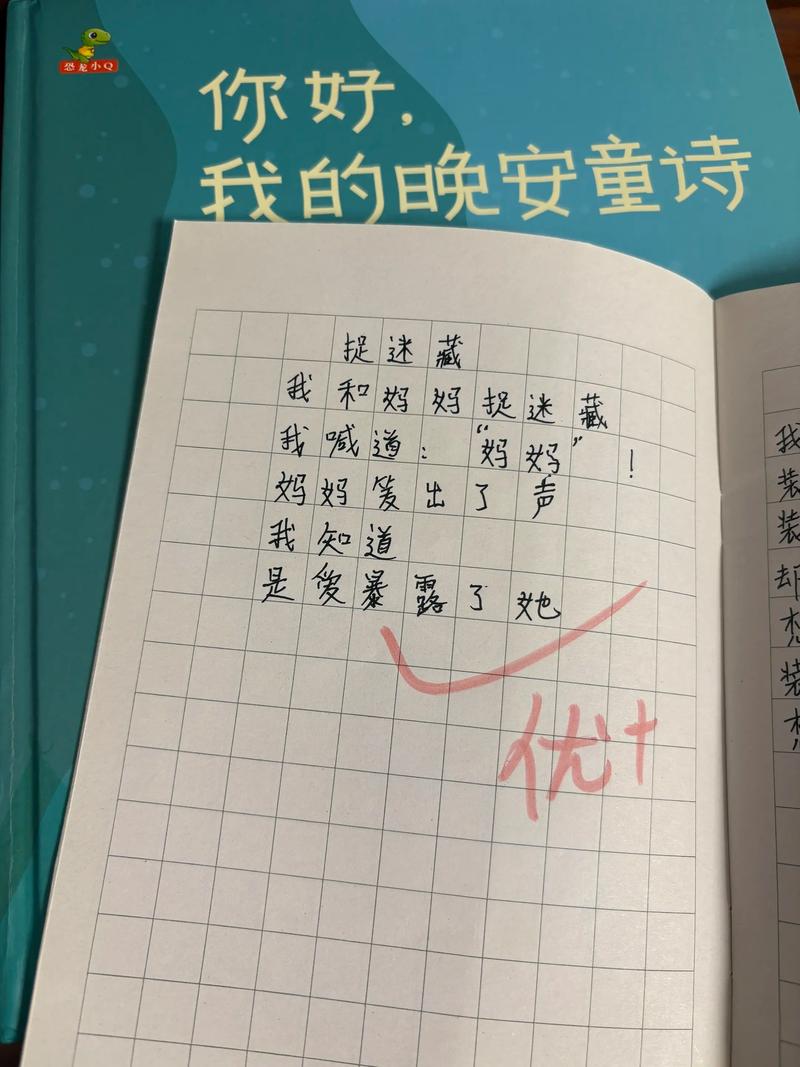 恐龙小Q
你好，
我的晚安童诗
捉迷藏
我和妈妈捉迷藏
我喊道：“妈妈”！
妈妈笑出了声
我知道
是爱暴露了她
优+
我
装
装
却
想
装
想